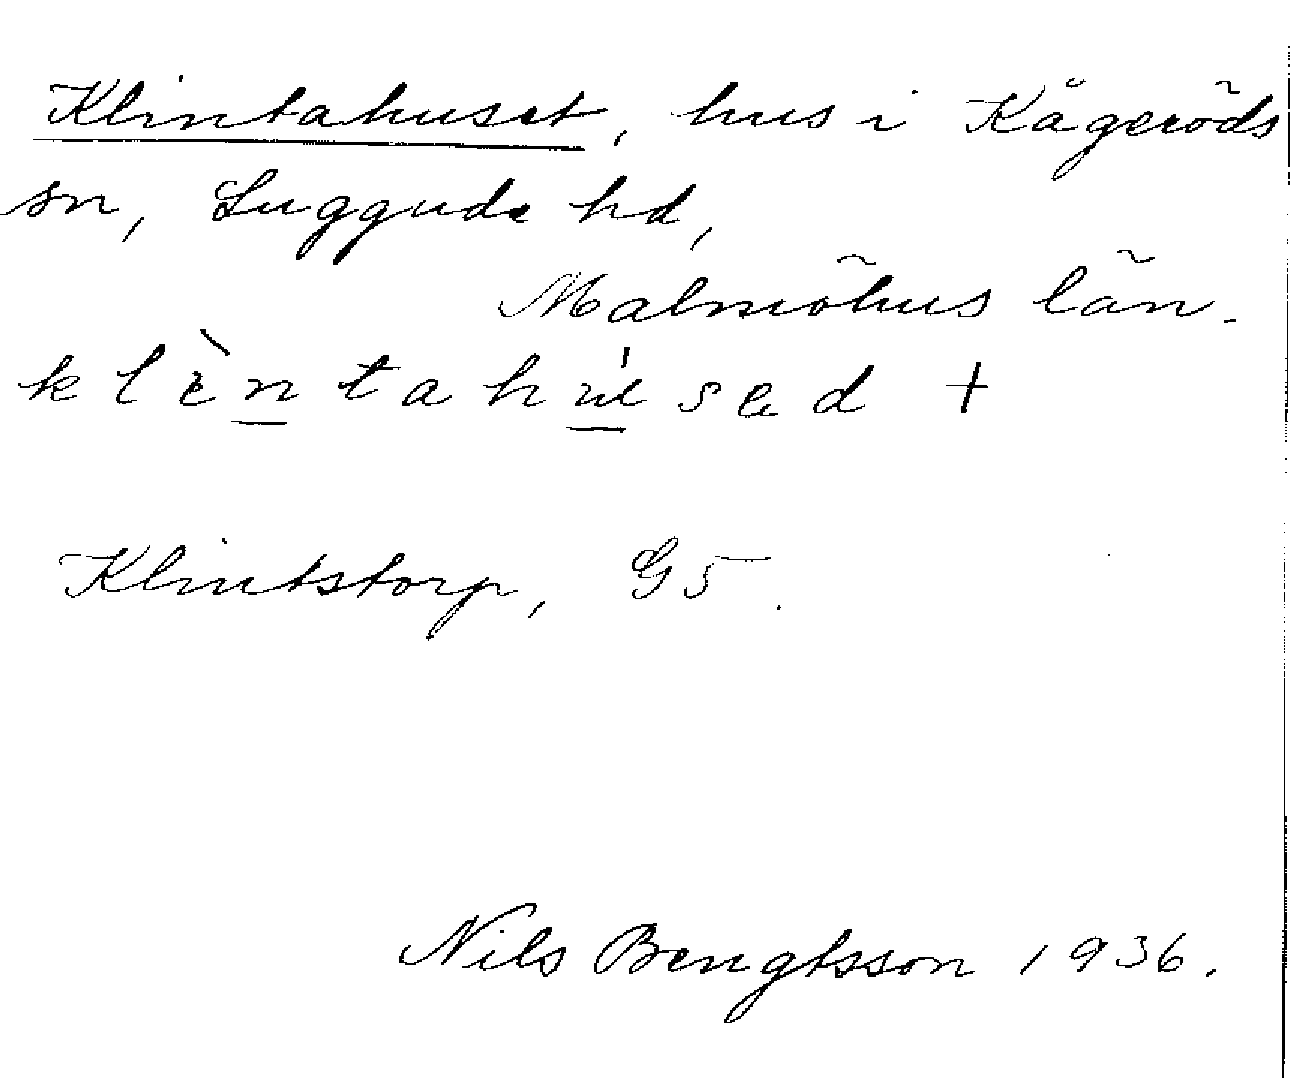 Klintahuset, hus i Kågeröds
sn, Luggude hd,
Malmöhus län.
klèntahúsed +
Klintstorp, G5.
Nils Bengtsson 1936.